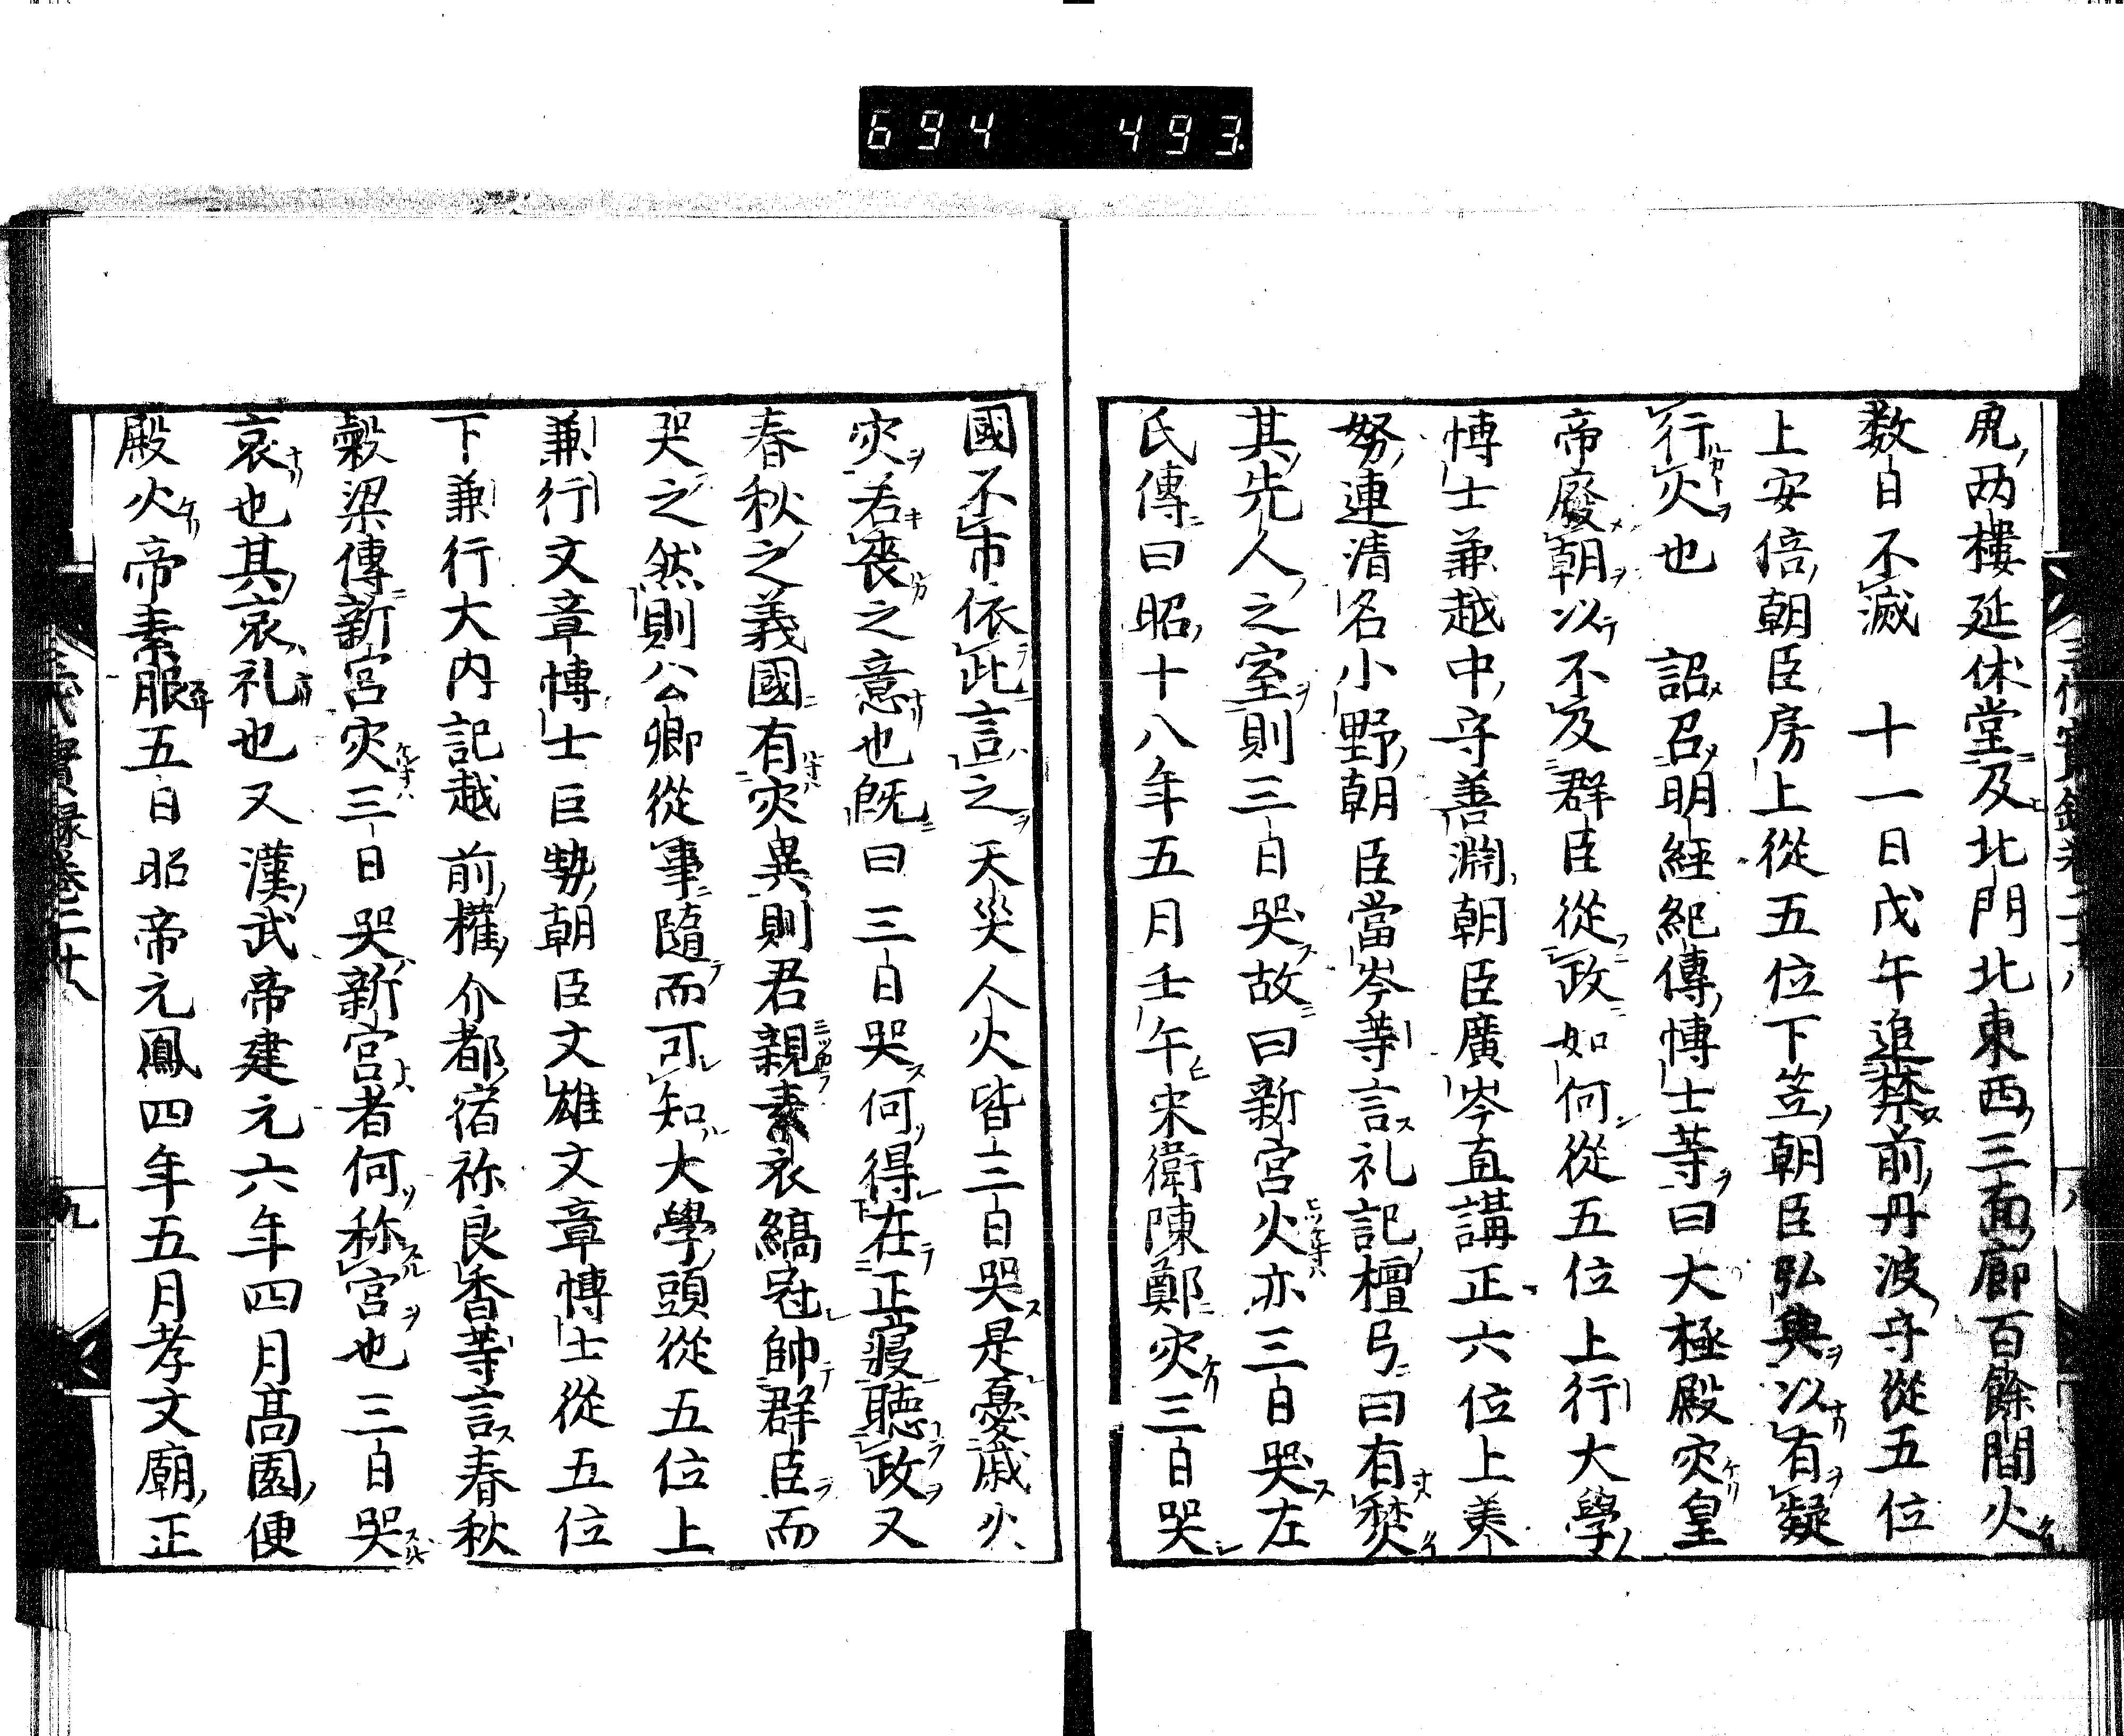 694 493
虎両樓延休堂及北門北東西三面廊百餘間火
数日不滅 十一日戊午追禁前丹波守從五位
上安倍朝臣房上從五位下笠朝臣弘興以有疑
行火也 詔召明經紀傳博士等曰大極殿灾皇
帝廢朝以不及群臣從政如何從五位上行大學
博士兼越中守善淵朝臣廣岑直講正六位上美
努連清名小野朝臣當岑等言礼記檀弓曰有焚
其先人之室則三日哭故曰新宮火亦三日哭左
氏傳曰昭十八年五月壬午宋衛陳鄭灾三日哭
國不市依此言之天災人火皆三日哭是憂戚火
灾若喪之意也既曰三日哭何得在正寢聴政又
春秋之義國有灾異則君親素衣縞冠帥群臣而
哭之然則公卿從事隨而可知大學頭從五位上
兼行文章博士巨勢朝臣文雄文章博士從五位
下兼行大内記越前權介都宿祢良香等言春秋
穀梁傳新宮灾三日哭新宮者何称宮也三日哭
哀也其哀礼也又漢武帝建元六年四月高園便
殿火帝素服五日昭帝元鳳四年五月孝文廟正
九